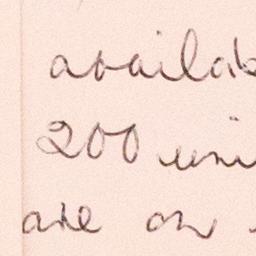 availab
200 uni
are on